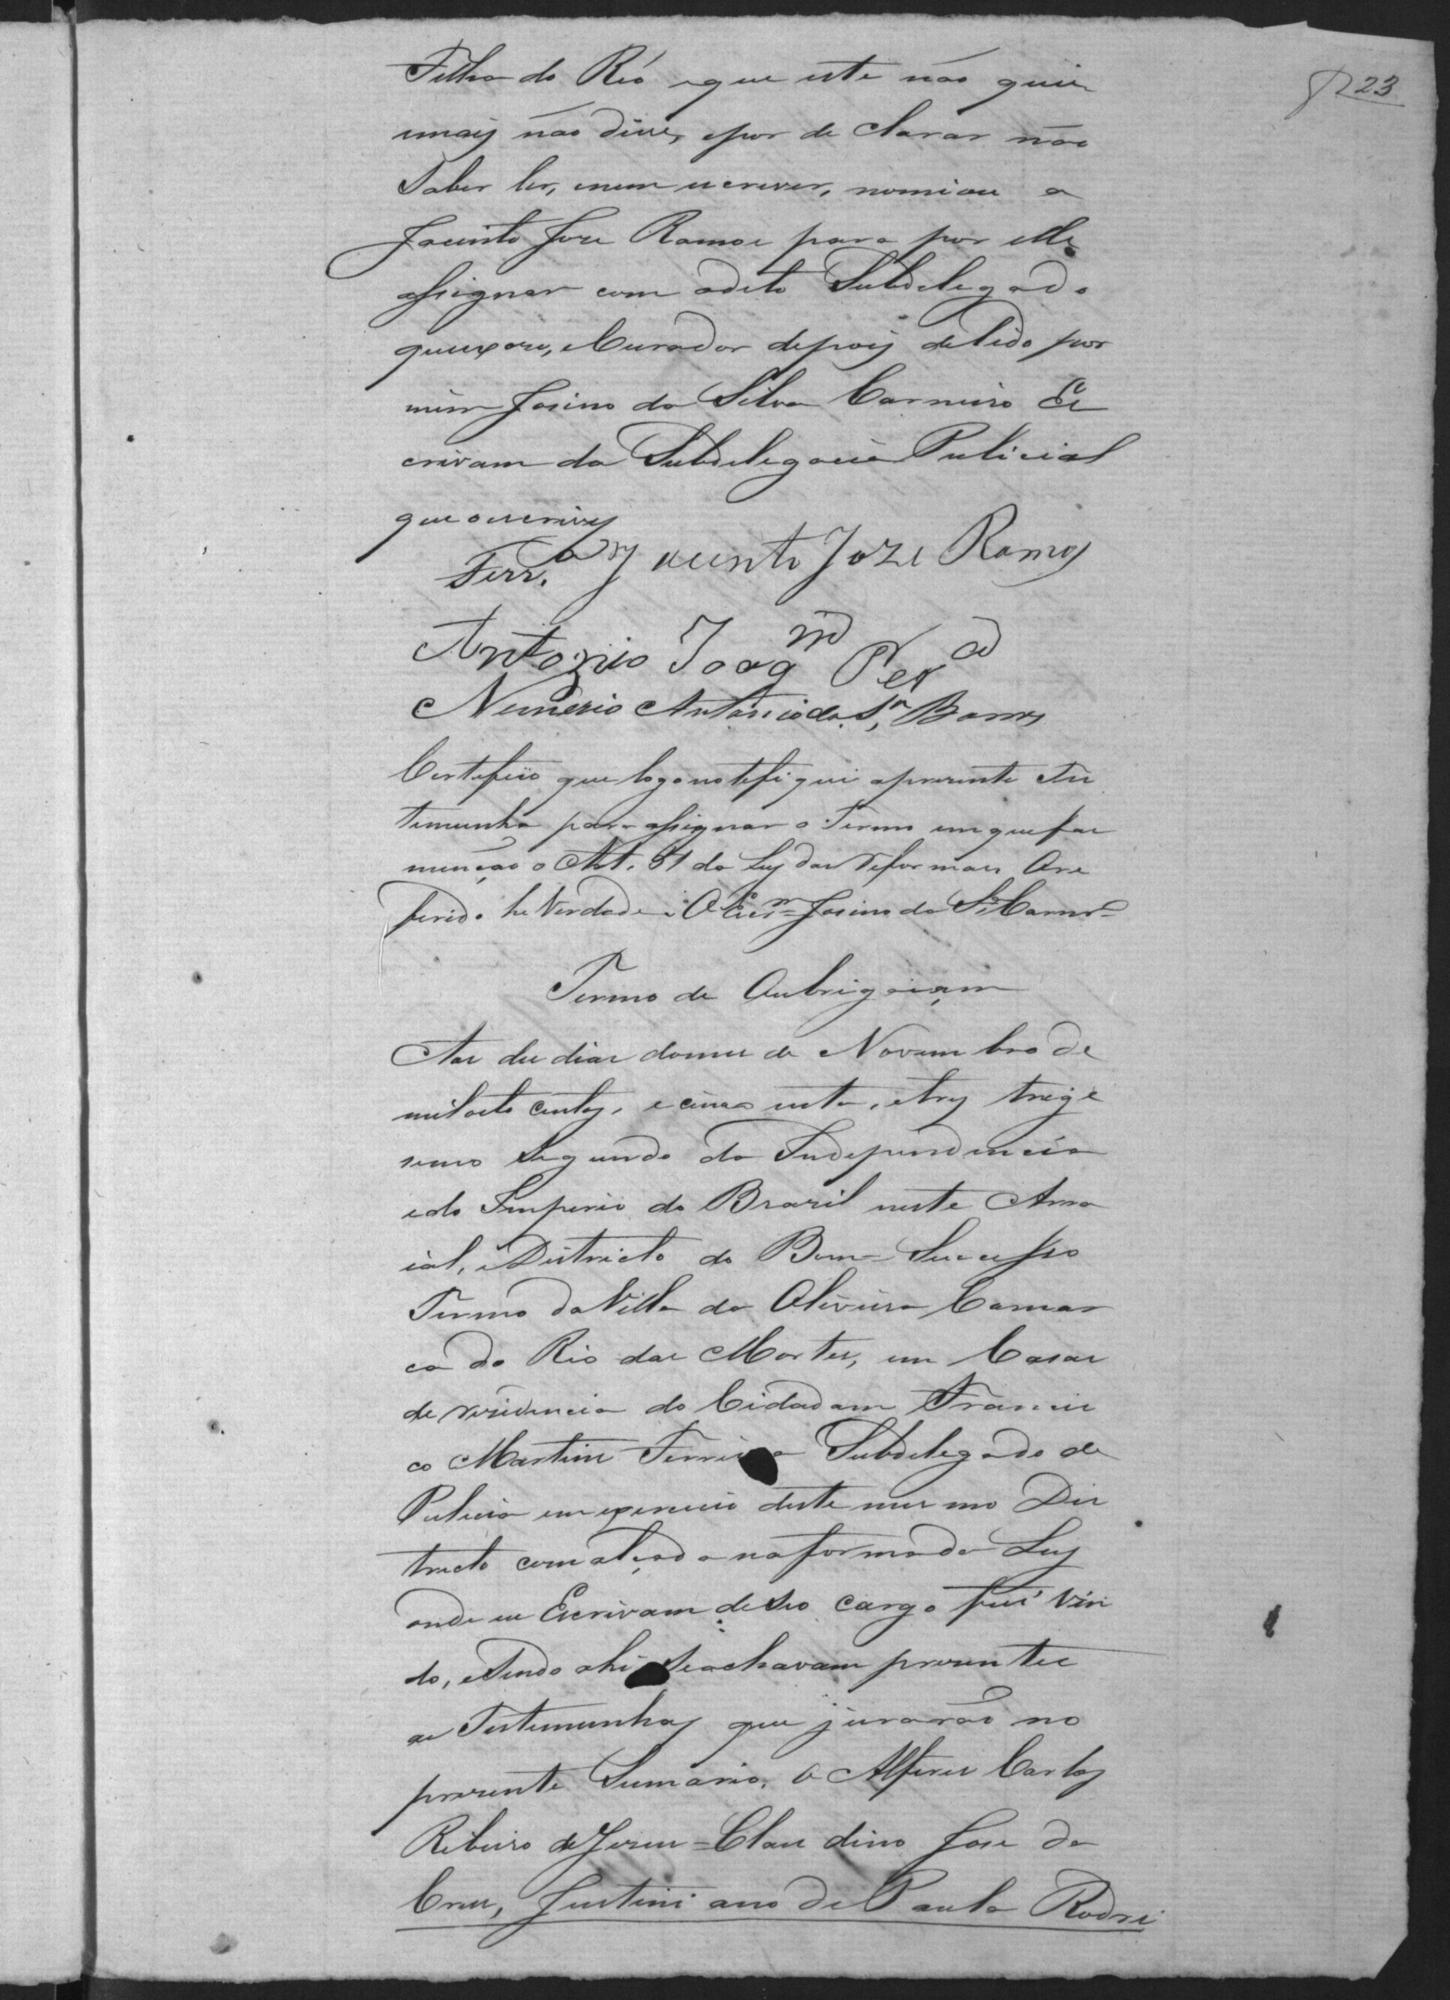 23
Filho do Reó e que este não quis
mais não disse, e por de clarar não
Saber ler, e nem escrever, nomiou a
Jacinto Jose Ramos para por elle
assignar com odito Subdelegado
queixozo, e Curador depois de lido por
mim Josino da Silva Carneiro Es
crivam da Subdelegacia Pulicial
que o escrevy
Ferr.a Jacinto Joze Ramos
Antonio Joaqm Per.a
Numerio Antonio da S.a Barros
Certefico que logo notefiquei apresente Tes
temunha para assignar o Termo em que faz
menção o Art. 51 da Ley das Reformas Ore
ferido he Verdade O Escm Josino da S.a Carnr.o
Termo de Aubrigaçam
Aos des dias domes de Novembro de
miloito centos, e cinco enta, e tres trige
simo Segundo da Independencia
edo Imperio do Brazil neste Arra
ial, e Districto do Bom Sucesso
Termo da Villa da Oliveira Comar
ca do Rio das Mortes, em Casas
de residencia do Cidadam Francis
co Martins Ferreira Subdelegado de
Pulicia em exercicio deste mesmo Dis
tricto com alçada na forma da Ley
onde eu Escrivam deseo cargo fui vin
do, e Sendo ahi Seachavam presentes
as Testemunhas que jurarão no
prezente Sumario, o Alferes Carlos
Ribeiro de Jesus = Claudino Jose da
Crus, Justini ano de Paula Rodri